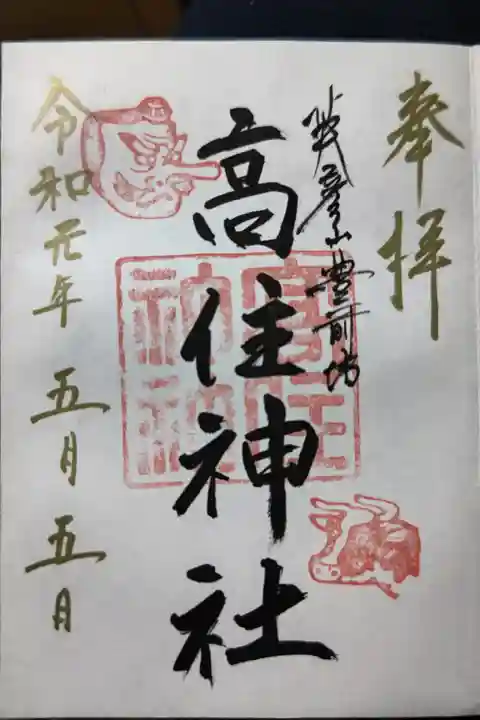 奉拝
英彦山豊前坊
高住神社
高住神社
令和元年 五月五日